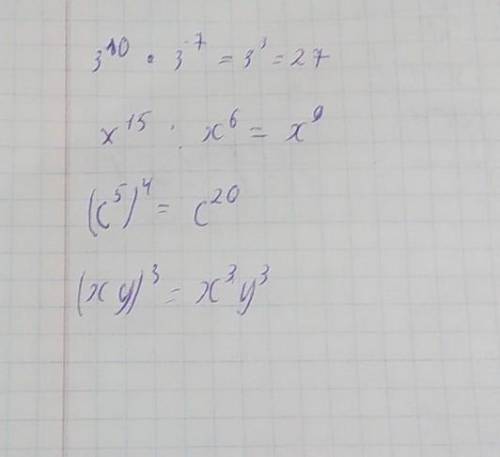 3^10 · 3^-7 = 3^3 = 27
x^15 : x^6 = x^9
(c^5)^4 = c^20
(xy)^3 = x^3y^3